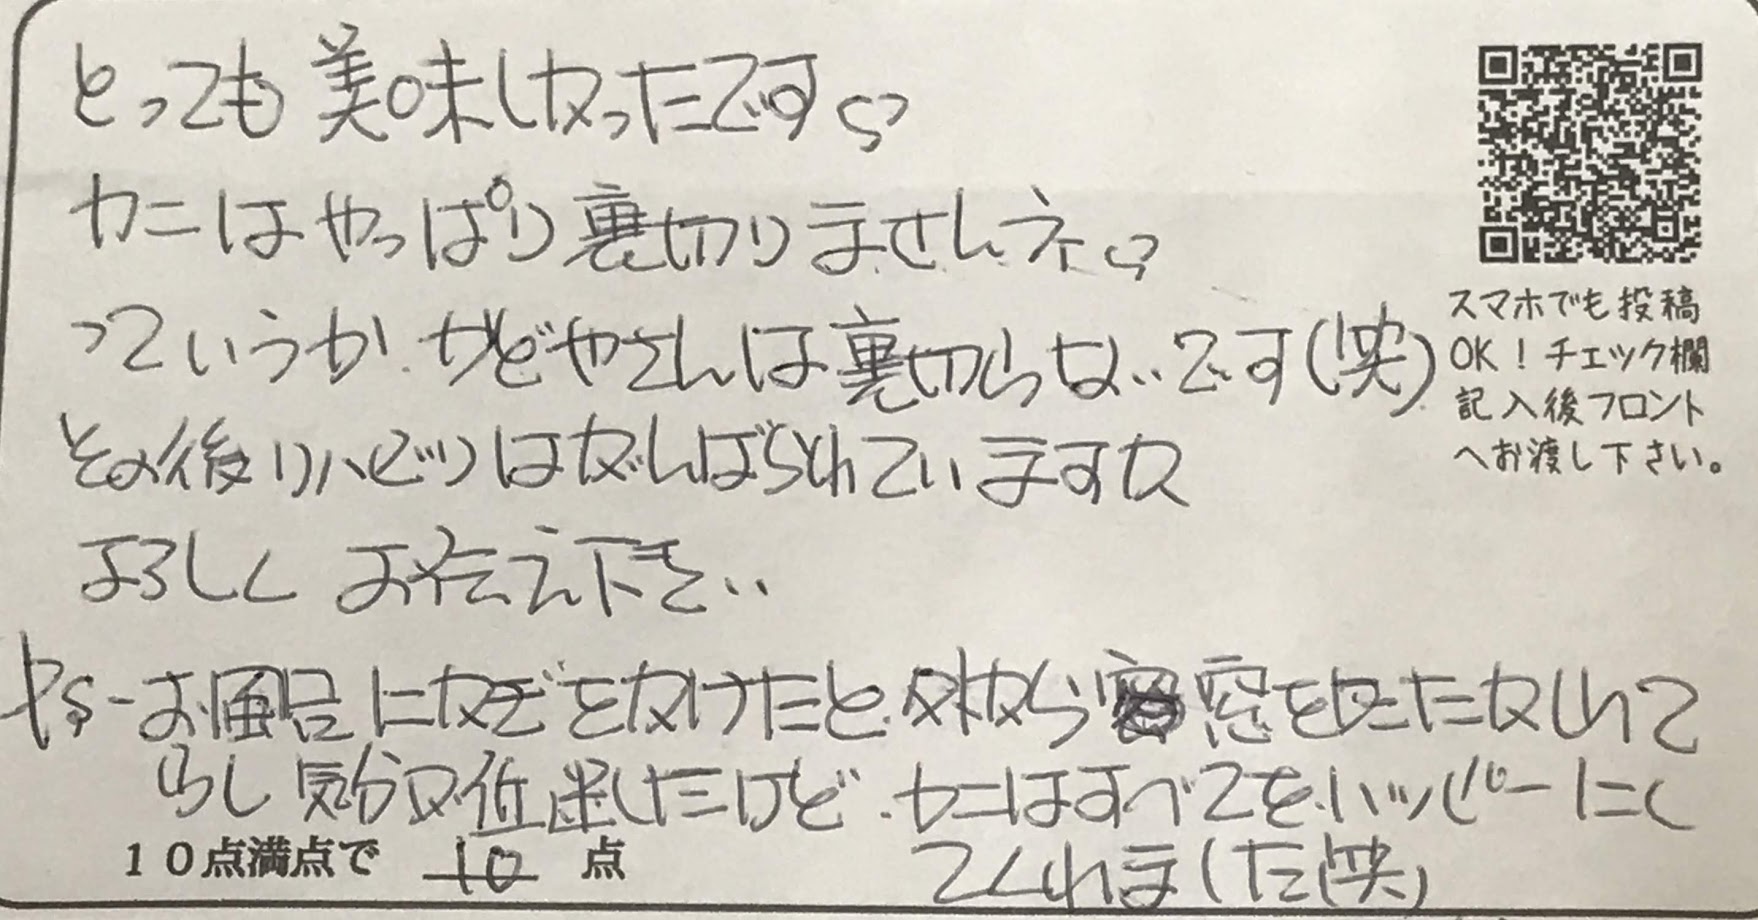 とっても美味しかったです♡
カニはやっぱり裏切りませんネ♡
っていうか、かどやさんは裏切らないです(笑)
その後リハビリはがんばられていますか
よろしくお伝え下さい
P.S-お風呂にカギをかけたと、外から窓をたたかれて
らし気分が低迷したけど、カニはすべてをハッピーにし
てくれました(笑)
10点満点で 10 点
スマホでも投稿
OK！チェック欄
記入後フロント
へお渡し下さい。